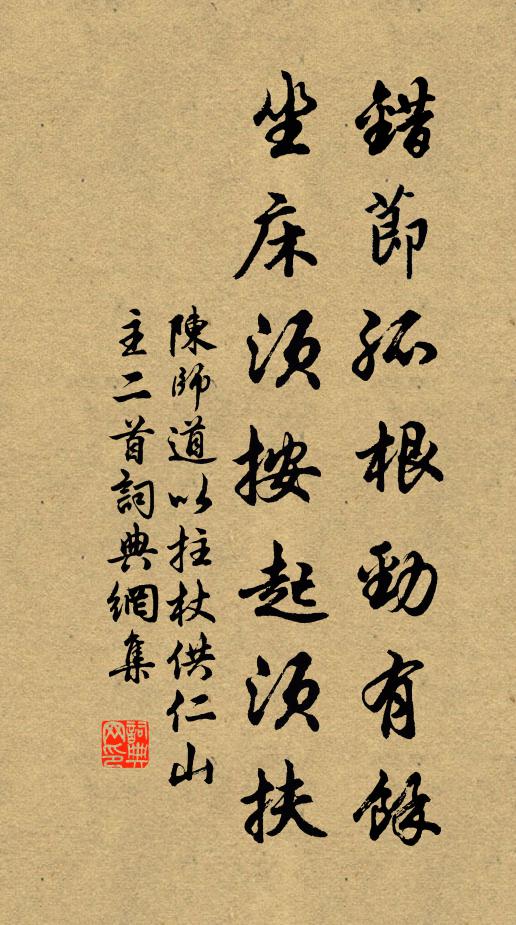 錯節孤根勁有餘
坐床須按起須扶
陳師道以拄杖供仁山
主二首詞典網集
詞典
网印